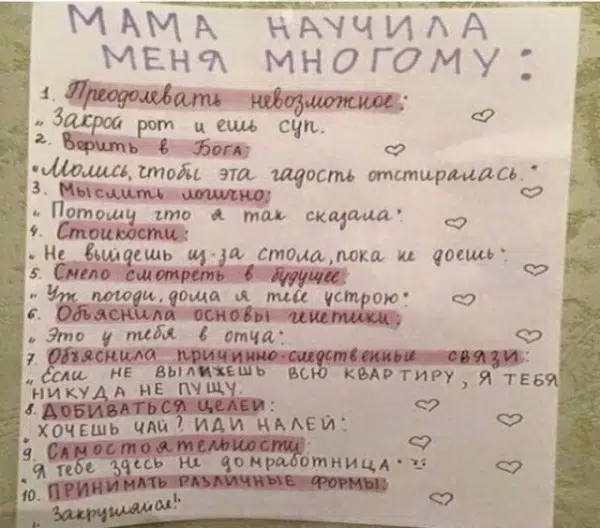 МАМА НАУЧИЛА
МЕНЯ МНОГОМУ:
1. Преодолевать невозможное:
„Закрой рот и ешь суп.
2. Верить в Бога:
„Молись, чтобы эта гадость отстиралась."
3. Мыслить логично:
„Потому что я так сказала"
4. Стойкости:
„Не выйдешь из-за стола, пока не доешь"
5. Смело смотреть в будущее
„Уж погоди, дома я тебе устрою"
6. Объяснила основы генетики:
„Это у тебя в отца"
7. Объяснила причинно-следственные связи:
„Если НЕ ВЫЛИЖЕШЬ ВСЮ КВАРТИРУ, Я ТЕБЯ
НИКУДА НЕ ПУЩУ.
8. ДОБИВАТЬСЯ ЦЕЛЕЙ:
"ХОЧЕШЬ ЧАЙ? ИДИ НАЛЕЙ"
9. Самостоятельности:
"Я тебе здесь не домработница"
10. ПРИНИМАТЬ РАЗЛИЧНЫЕ ФОРМЫ:
„Закругляйся!"